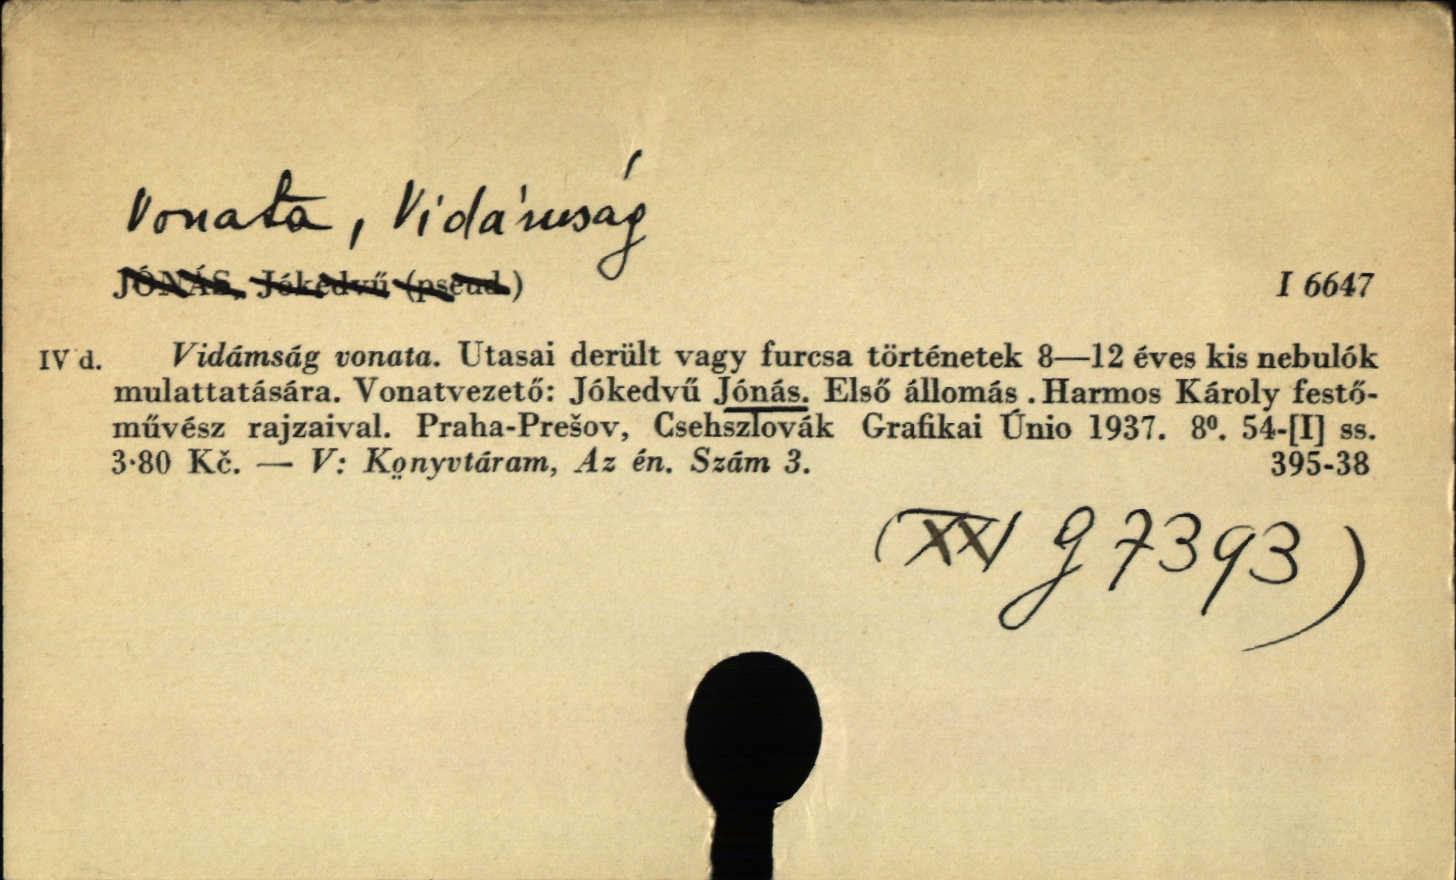 Vonata, Vidámság
JÓNÁS, Jókedvű (pseud.)
I 6647
IV d. Vidámság vonata. Utasai derült vagy furcsa történetek 8—12 éves kis nebulók
mulattatására. Vonatvezető: Jókedvű Jónás. Első állomás. Harmos Károly festő-
művész rajzaival. Praha-Prešov, Csehszlovák Grafikai Únio 1937. 8⁰. 54-[I] ss.
3·80 Kč. — V: Könyvtáram, Az én. Szám 3. 395-38
(XXI g 7393)